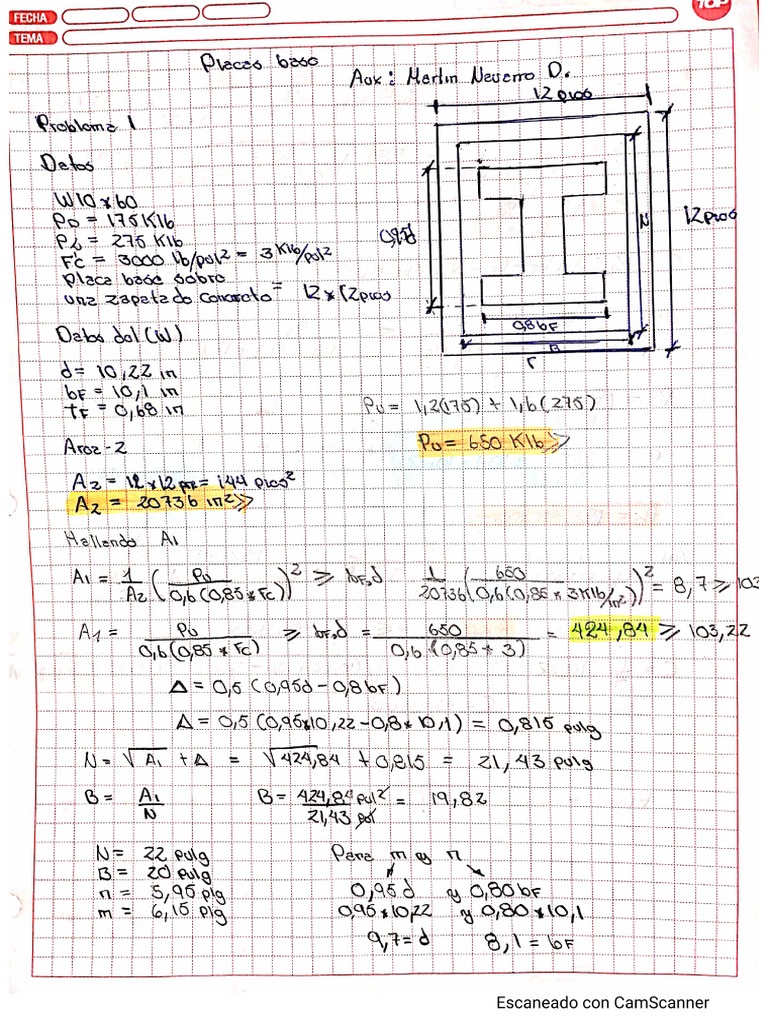 FECHA
TEMA
TOP
Placas base
Aux: Merlin Neverro D.
12 pies
Problema 1
Datos
W10 * 60
PD = 175 Klb
PL = 275 Klb
F'c = 3000 lb/pul² = 3 Klb/pul²
placa base sobre
una zapata de concreto = 12 * 12 pies
0,95d
N
12 pies
0,8 bF
B
Datos del (W)
d = 10,22 in
bF = 10,1 in
tF = 0,68 in
Pu = 1,2(175) + 1,6(275)
Pu = 650 Klb
Area - 2
A2 = 12 * 12 pies = 144 pies²
A2 = 20736 in²
Hallando A1
A1 = 1/A2 (Pu / 0,6(0,85 * Fc))² ≥ bF.d 1/20736 (650 / 0,6(0,85 * 3 Klb/in²))² = 8,7 ≥ 103
A1 = Pu / 0,6(0,85 * Fc) ≥ bF.d = 650 / 0,6(0,85 * 3) = 424,84 ≥ 103,22
Δ = 0,5 (0,95d - 0,8bF)
Δ = 0,5 (0,95*10,22 - 0,8*10,1) = 0,815 pulg
N = √A1 + Δ = √424,84 + 0,815 = 21,43 pulg
B = A1/N B = 424,84 pul² / 21,43 pul = 19,82
N = 22 pulg
B = 20 pulg
n = 5,95 plg
m = 6,15 plg
Para m y n
0,95d y 0,80 bF
0,95 * 10,22 y 0,80 * 10,1
9,7 = d 8,1 = bF
Escaneado con CamScanner